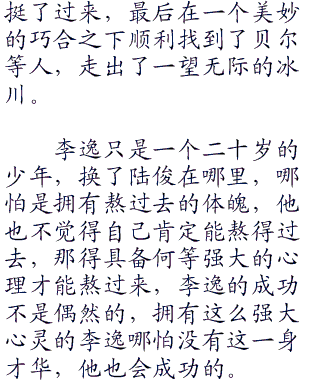 挺了过来，最后在一个美妙
的巧合之下顺利找到了贝尔
等人，走出了一望无际的冰
川。
李逸只是一个二十岁的
少年，换了陆俊在哪里，哪
怕是拥有熬过去的体魄，他
也不觉得自己肯定能熬得过
去，那得具备何等强大的心
理才能熬过来，李逸的成功
不是偶然的，拥有这么强大
心灵的李逸哪怕没有这一身
才华，他也会成功的。